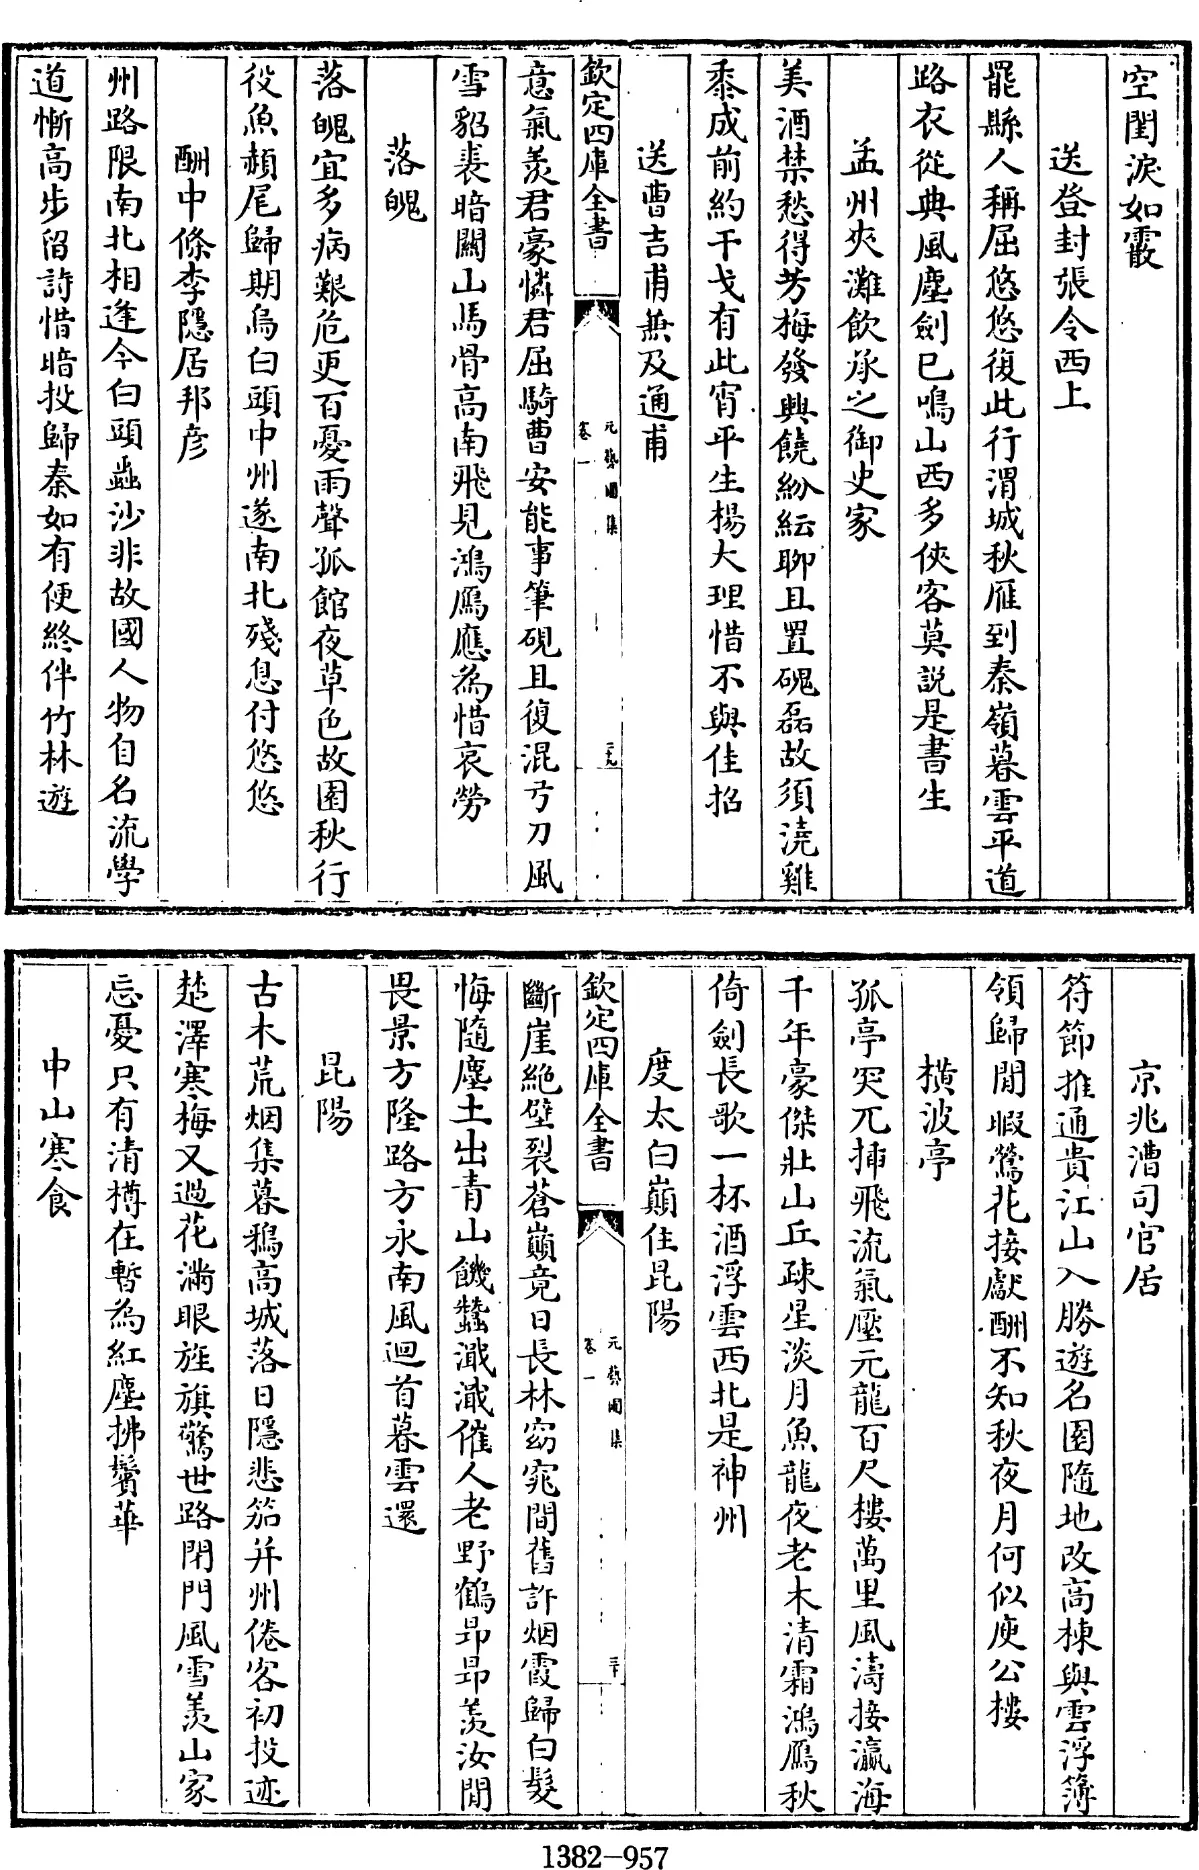 空閨淚如霰
送登封張令西上
罷縣人稱屈悠悠復此行渭城秋雁到秦嶺暮雲平道
路衣從典風塵劍已鳴山西多俠客莫説是書生
孟州夾灘飲承之御史家
美酒禁愁得芳梅發興饒紛紜聊且置磈磊故須澆雞
黍成前約干戈有此宵平生楊大理惜不與佳招
送曹吉甫兼及通甫
欽定四庫全書
元藝圃集
卷一
二十九
意氣羨君豪憐君屈騎曹安能事筆硯且復混弓刀風
雪貂裘暗關山馬骨高南飛見鴻鴈應為惜哀勞
落魄
落魄宜多病艱危更百憂雨聲孤館夜草色故園秋行
役魚頳尾歸期烏白頭中州遂南北殘息付悠悠
酬中條李隱居邦彦
州路限南北相逢今白頭蟲沙非故國人物自名流學
道慚高步留詩惜暗投歸秦如有便終伴竹林遊
京兆漕司官居
符節推通貴江山入勝遊名園隨地改高棟與雲浮簿
領歸閒暇鶯花接獻酬不知秋夜月何似庾公樓
横波亭
孤亭突兀揷飛流氣壓元龍百尺樓萬里風濤接瀛海
千年豪傑壯山丘疎星淡月魚龍夜老木清霜鴻鴈秋
倚劍長歌一杯酒浮雲西北是神州
度太白巔住昆陽
欽定四庫全書
元藝圃集
卷一
三十
斷崖絶壁裂蒼巔竟日長林窈窕間舊許烟霞歸白髮
悔隨塵土出青山饑蠶濈濈催人老野鶴昻昻羨汝閒
畏景方隆路方永南風迴首暮雲還
昆陽
古木荒烟集暮鴉高城落日隱悲笳并州倦客初投迹
楚澤寒梅又過花滿眼旌旗驚世路閉門風雪羨山家
忘憂只有清樽在暫為紅塵拂鬢華
中山寒食
1382-957